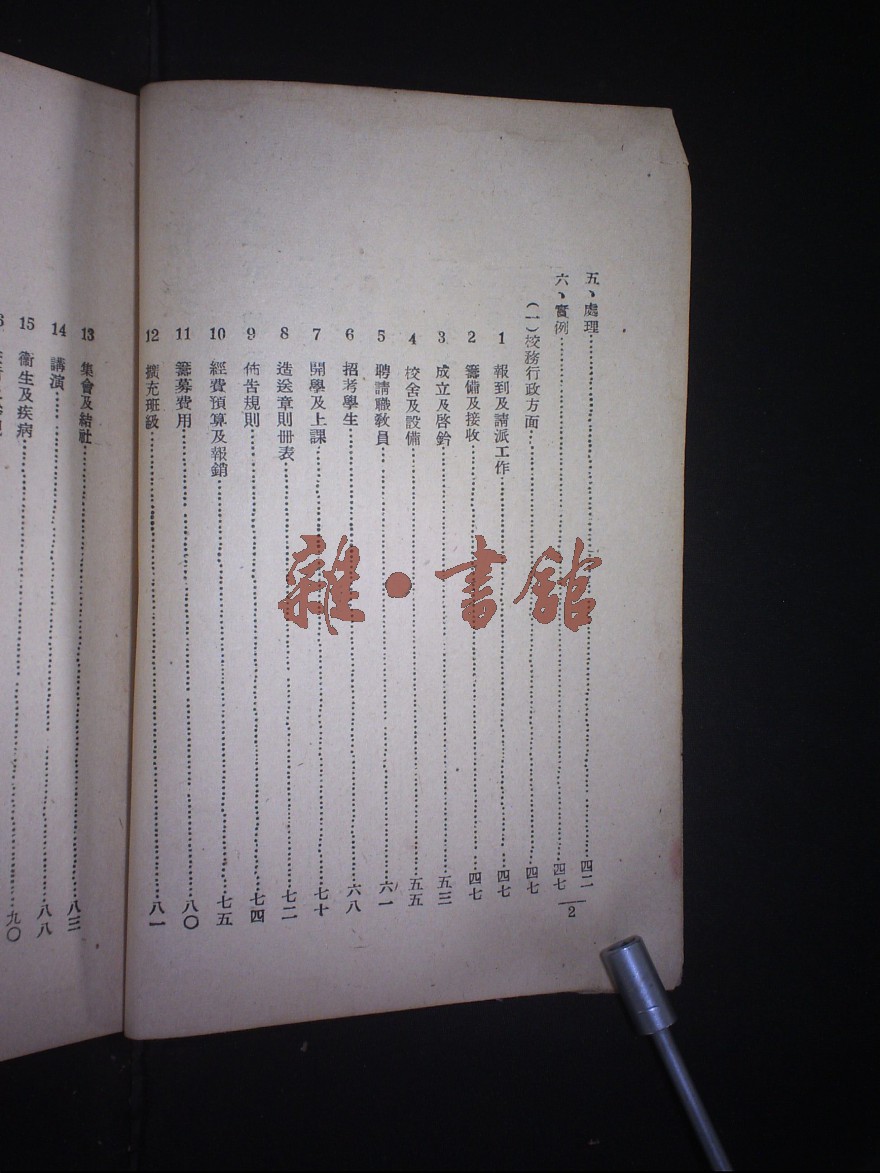 五、處理……四二
六、實例……四七
（一）校務行政方面……四七
1 報到及請派工作……四七
2 籌備及接收……四七
3 成立及啓鈐……五三
4 校舍及設備……五五
5 聘請職敎員……六一
6 招考學生……六八
7 開學及上課……七十
8 造送章則册表……七二
9 佈告規則……七四
10 經費預算及報銷……七五
11 籌募費用……八〇
12 擴充班級……八一
2
13 集會及結社……八三
14 講演……八八
15 衞生及疾病……九〇
雜·書館